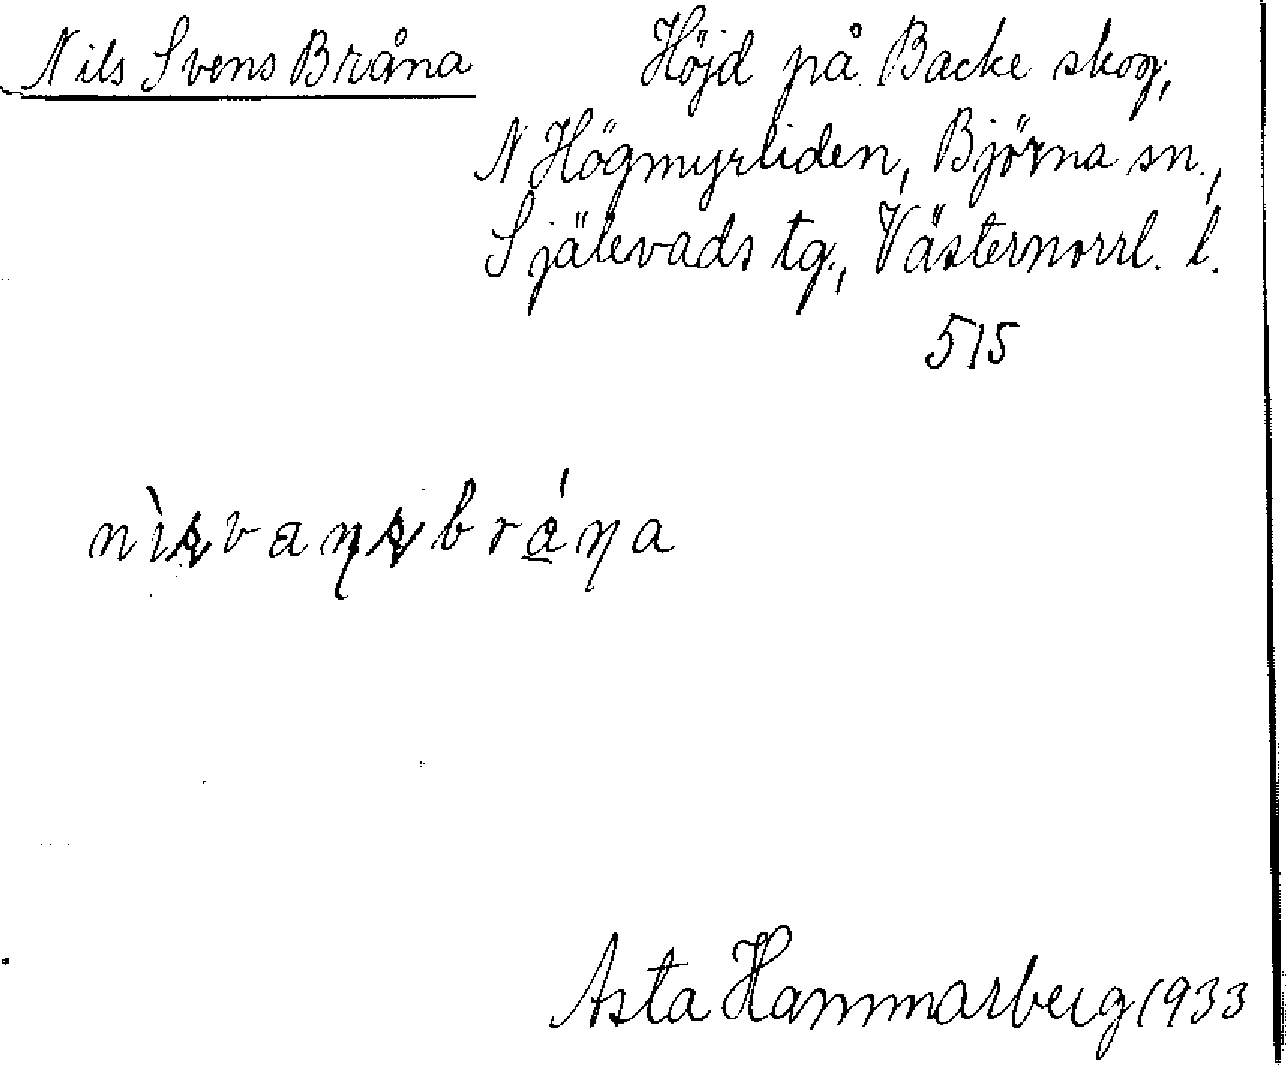 Nils Svens Bråna
Höjd på Backe skog,
N Högmyrliden, Björna sn.,
Själevads tg., Västernorrl. l.
515
Asta Hammarberg 1933